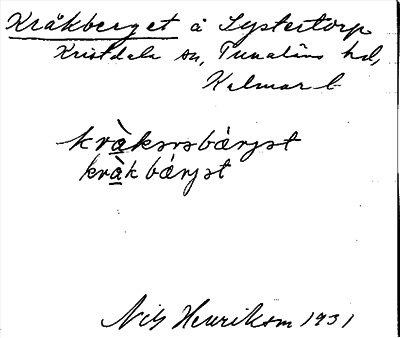 Kråkberget å Systertorp
Kristdala sn, Tunaläns hd,
Kalmar l.
kràksrsbærjət
kràk bærjət
Nils Henriksson 1931